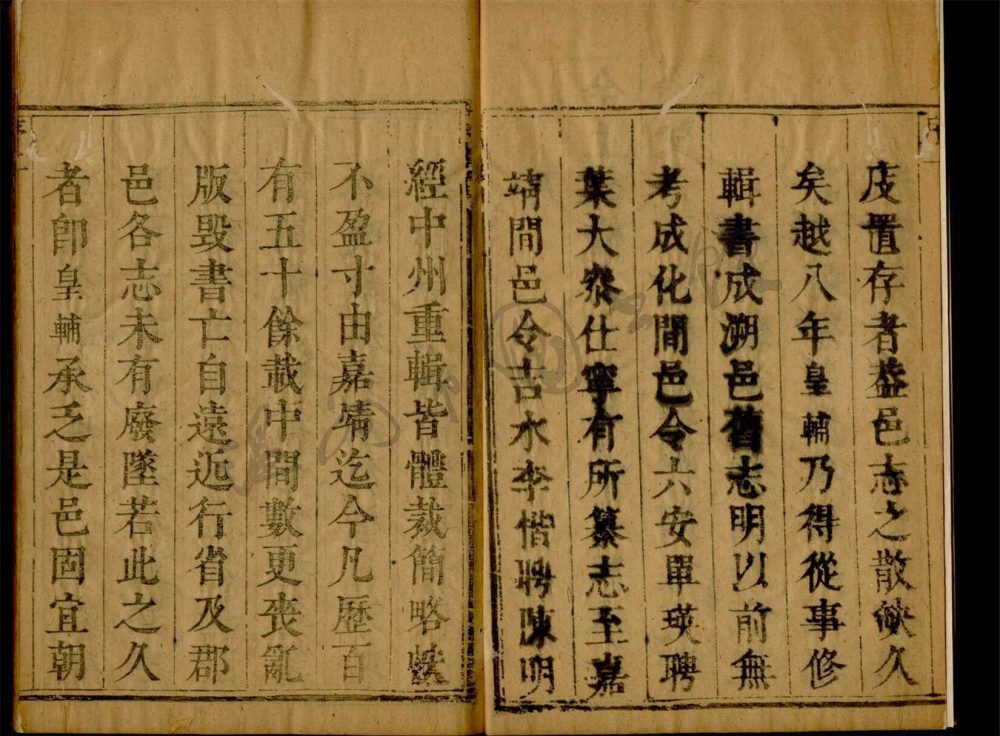 庋置存者葢邑志之散缺久
矣越八年皇輔乃得從事修
輯書成溯邑舊志明以前無
考成化間邑令六安單瑛聘
葉大叅仕寧有所纂志至嘉
靖間邑令吉水李愷聘陳明
經中州重輯皆體裁簡略帙
不盈寸由嘉靖迄今凡歷百
有五十餘載中間數更喪亂
版毀書亡自遠近行省及郡
邑各志未有廢墜若此之久
者卽皇輔承乏是邑固宜朝